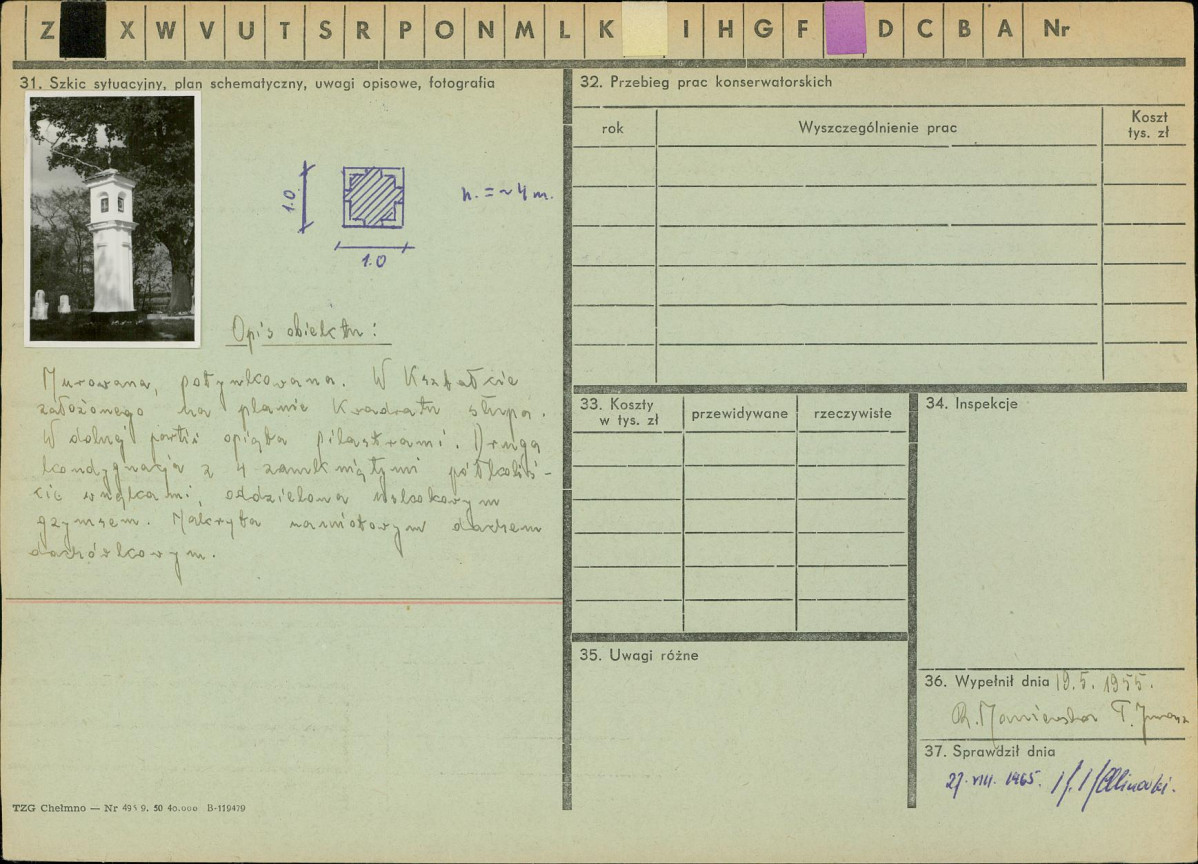 Z X W V U T S R P O N M L K I H G F D C B A Nr
31. Szkic sytuacyjny, plan schematyczny, uwagi opisowe, fotografia
1.0
1.0
h. = ~ 4 m.
Opis obiektu:
Murowana, potynkowana. W Kształcie
założonego na planie Kwadratu słupa.
W dolnej partii opięta pilastrami. Druga
kondygnacja z 4 zamkniętymi półkoliś-
cie wnękami, oddzielona uskokowym
gzymsem. Nakryta namiotowym dachem
dachówkowym.
TZG Chełmno — Nr 495 9. 50 40.000 B-119479
32. Przebieg prac konserwatorskich
rok Wyszczególnienie prac Koszt
tys. zł
33. Koszty
w tys. zł przewidywane rzeczywiste
34. Inspekcje
35. Uwagi różne
36. Wypełnił dnia 19.5.1955.
37. Sprawdził dnia
27. VIII. 1965.